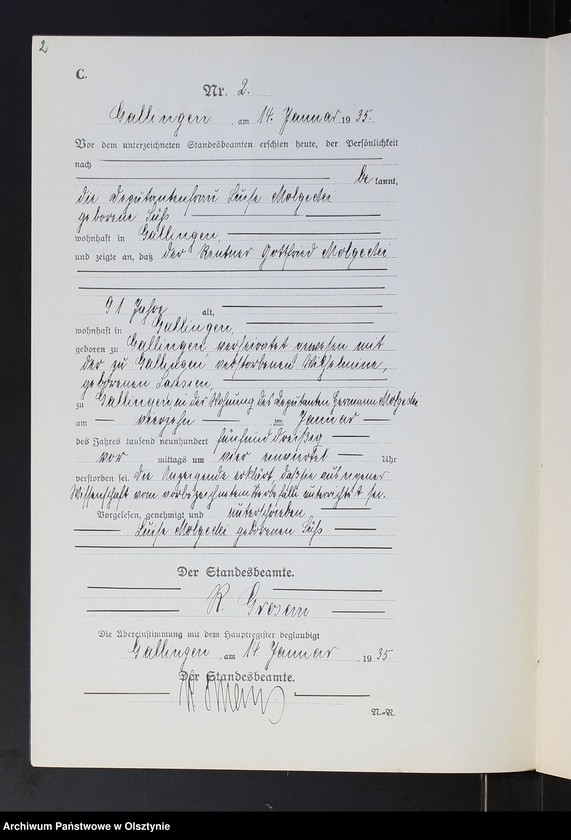 2
C.
Nr. 2.
Gallingen, am 14. Januar 1935.
Vor dem unterzeichneten Standesbeamten erschien heute, der Persönlichkeit
nach
bekannt,
die Deputantenfrau Luise Molgedei
geborene Süß
wohnhaft in Gallingen,
und zeigte an, daß der Rentner Gottfried Molgedei
91 Jahre alt,
wohnhaft in Gallingen,
geboren zu Gallingen, verheiratet gewesen mit
der zu Gallingen verstorbenen Wilhelmine,
geborenen
zu Gallingen, in der Wohnung des Deputanten Hermann Molgedei
am vierzehn ten Januar
des Jahres tausend neunhundert fünfunddreißig
vor mittags um vier einviertel Uhr
verstorben sei. Die Anzeigende erklärt, daß sie aus eigener
Wissenschaft vom vorbezeichneten Sterbefalle unterrichtet sei.
Vorgelesen, genehmigt und unterschrieben
Luise Molgedei geborenen Süß
Der Standesbeamte.
R.
Die Übereinstimmung mit dem Hauptregister beglaubigt
Gallingen, am 14. Januar 1935.
Der Standesbeamte.
R.
N.-R.
Archiwum Państwowe w Olsztynie